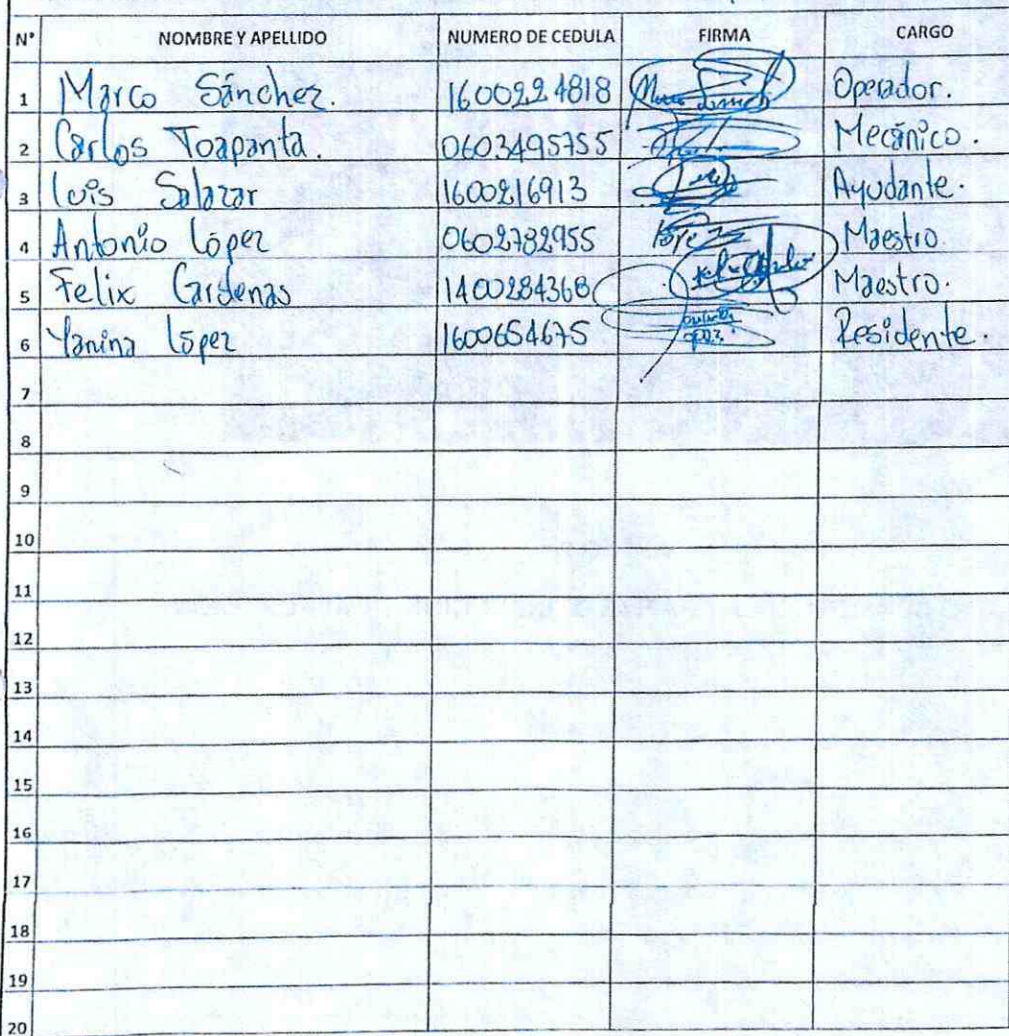 N° NOMBRE Y APELLIDO NUMERO DE CEDULA FIRMA CARGO
1 Marco Sánchez. 1600224818 Operador.
2 Carlos Toapanta. 0603495755 Mecánico.
3 Luis Salazar 1600216913 Ayudante.
4 Antonio López 0602782955 López Maestro.
5 Felix Cardenas 1400284368 Maestro.
6 Yanina López 1600654675 Residente.
7
8
9
10
11
12
13
14
15
16
17
18
19
20